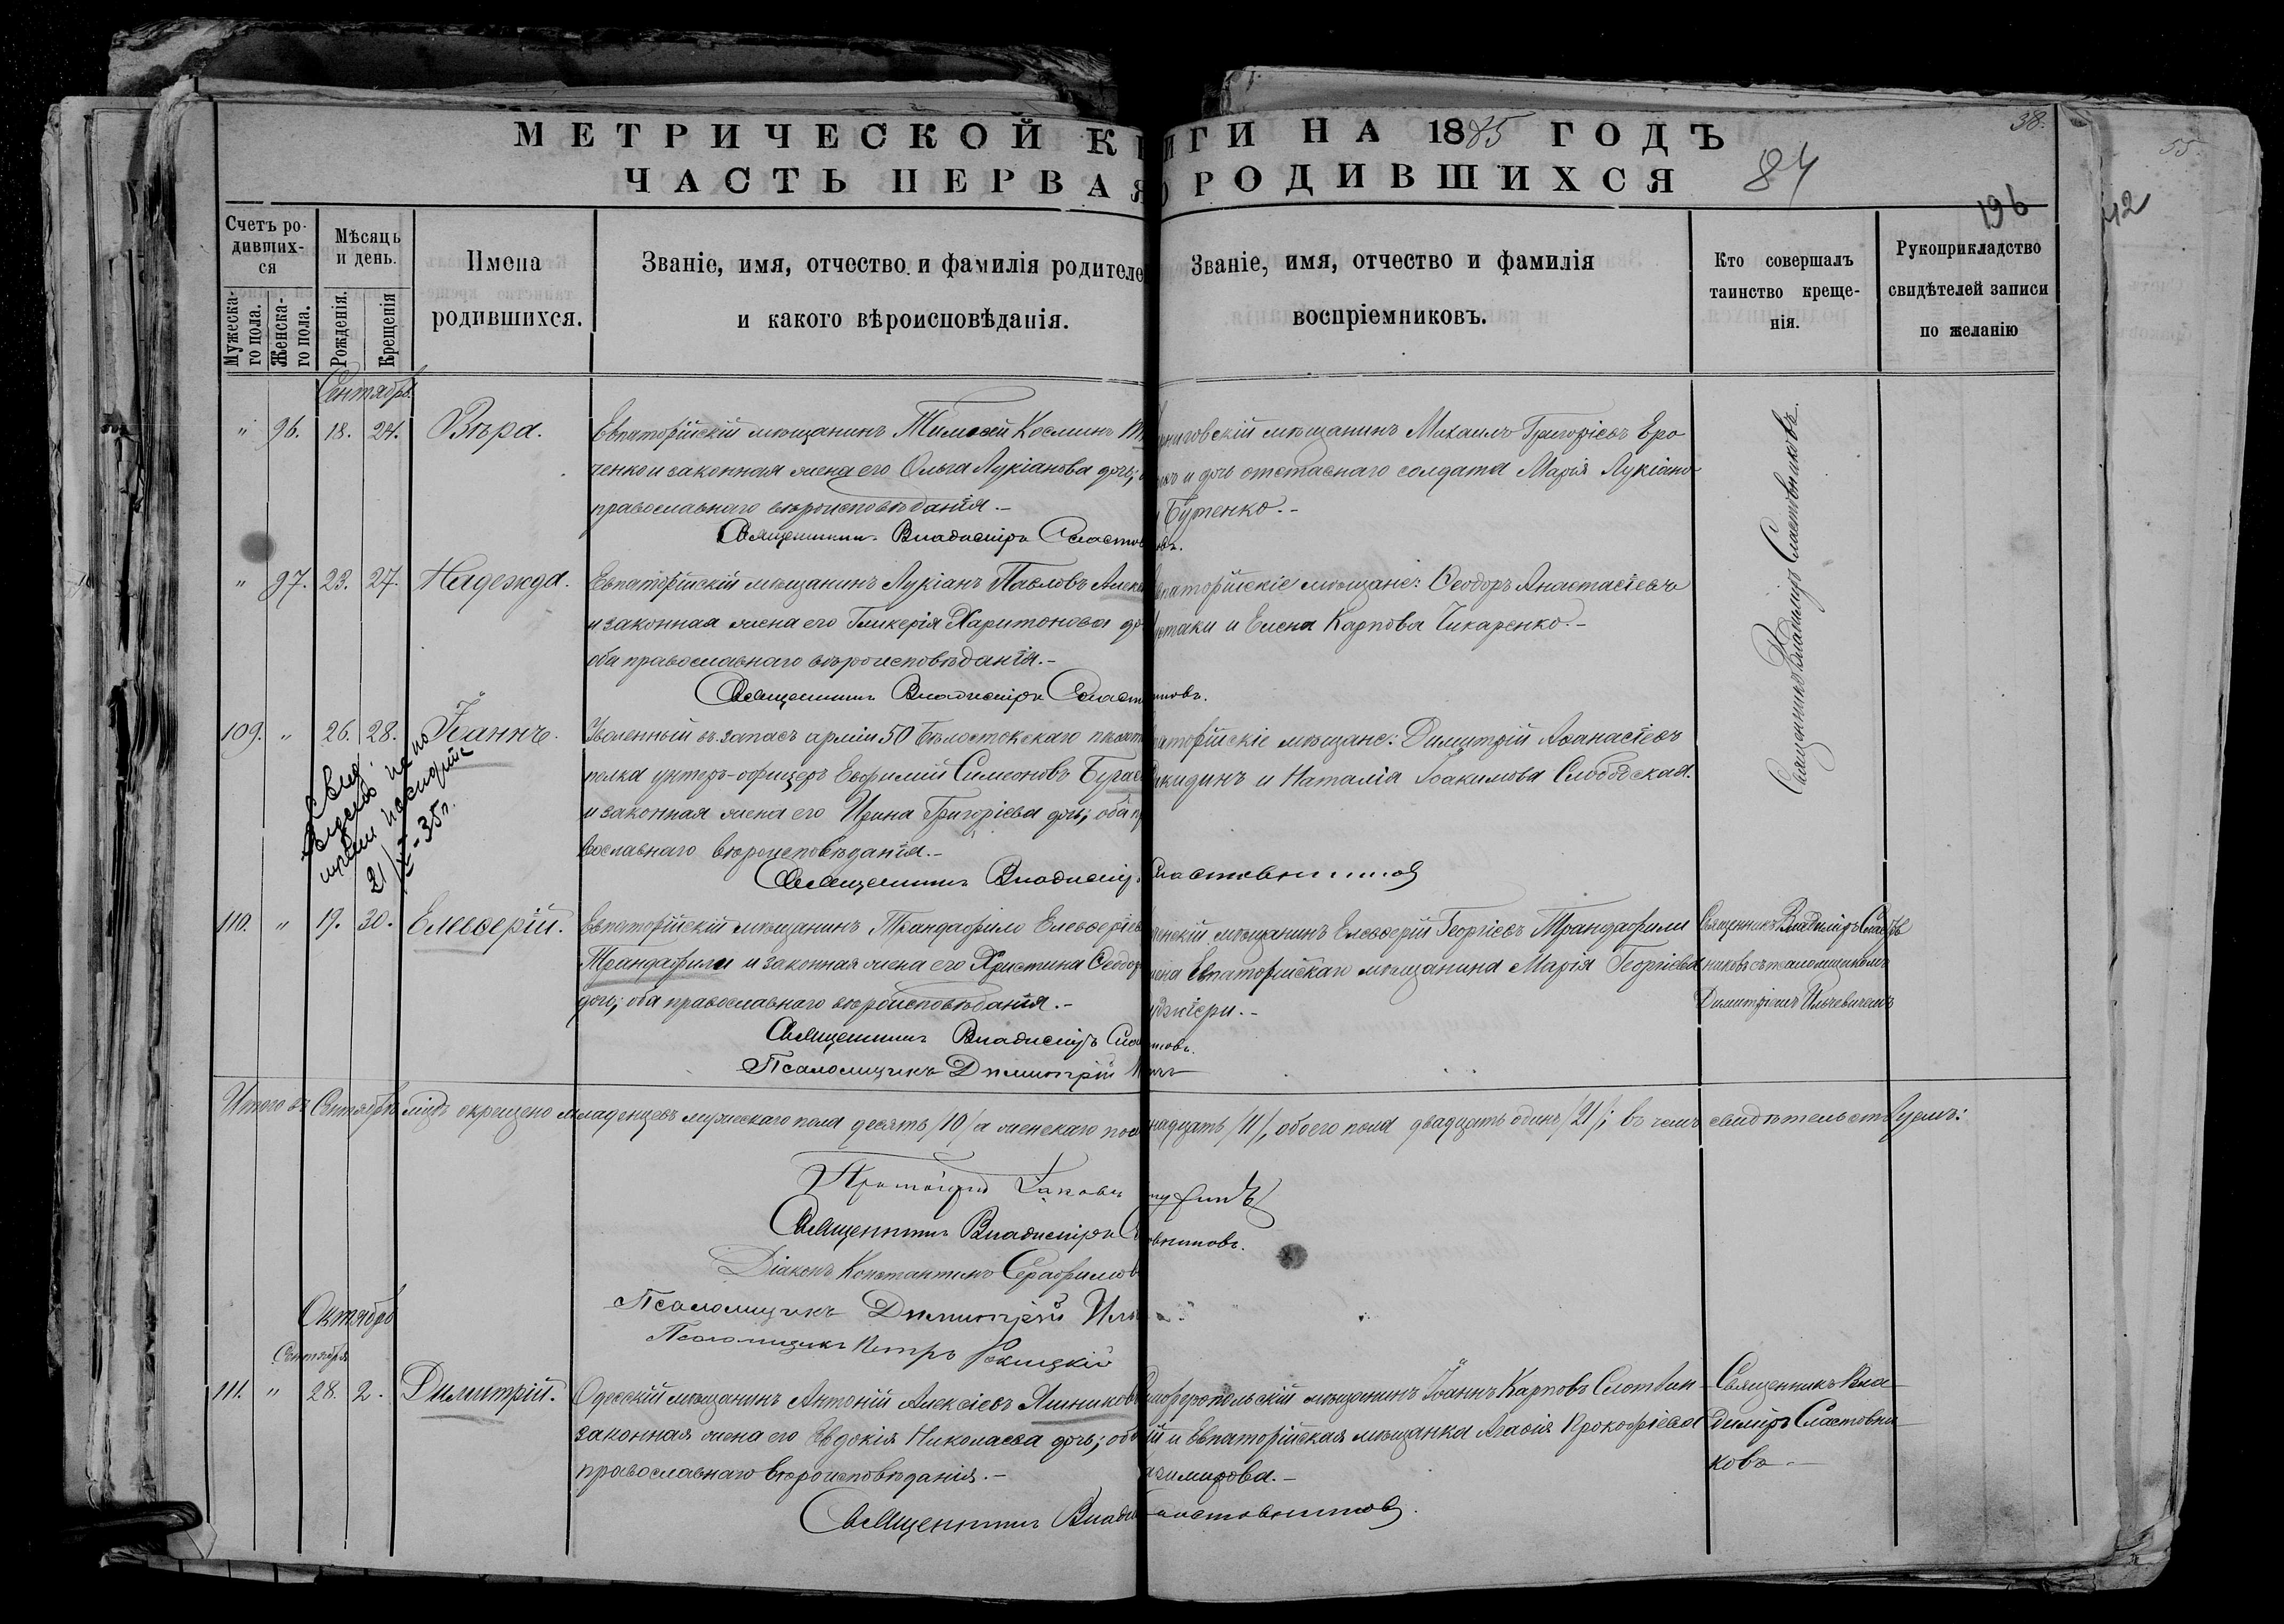 МЕТРИЧЕСКОЙ К ИГИ НА 1885 ГОДЪ
ЧАСТЬ ПЕРВАЯ О РОДИВШИХСЯ
38.
84
196
42
55.
Счетъ ро-
дивших-
ся
Мужеска-
го пола.
Женска-
го пола.
Мѣсяць
и день.
Рожденія.
Крещенія
Имена
родившихся.
Званіе, имя, отчество и фамилія родителе
и какого вѣроисповѣданія.
Званіе, имя, отчество и фамилія
воспріемниковъ.
Кто совершалъ
таинство креще-
нія.
Рукоприкладство
свидѣтелей записи
по желанію
Сентябрь.
" 96. 18. 24. Вѣра.
Евпаторійскій мѣщанинъ Тимофей Косминъ
ченко и законная жена его Ольга Лукіанова дочь;
православнаго вѣроисповѣданія.-
Священникъ Владиміръ Сластов
рниговскій мѣщанинъ Михаилъ Григоріевъ Еро
и дочь отставнаго солдата Марія Лукіано
Бутенко.-
овъ.
Священникъ Владиміръ Сластовниковъ.
" 97. 23. 27. Надежда.
Евпаторійскій мѣщанинъ Лукіанъ Павловъ Алекс
и законная жена его Гликерія Харитонова до
оба православнаго вѣроисповѣданія.-
Священникъ Владиміръ Сласт
впаторійскіе мѣщане: Ѳеодоръ Анастасіевъ
стаки и Елена Карпова Чикаренко.-
никовъ.
109. " 26. 28. Іоаннъ.
Уволенный въ запасъ арміи 50 Бѣлостокскаго пѣхот
полка унтеръ-офицеръ Евфимій Симеоновъ Бугае
и законная жена его Ирина Григоріева дочь; оба п
вославнаго вѣроисповѣданія.-
Священникъ Владимір
паторійскіе мѣщане: Димитрій Аѳанасіевъ
икидинъ и Наталія Іоакимова Слободская.
ластовниковъ
110. " 19. 30. Елевѳерій.
Евпаторійскій мѣщанинъ Трандафило Елевѳеріев
Трандафили и законная жена его Христина Ѳеодор
дочь; оба православнаго вѣроисповѣданія.-
Священникъ Владиміръ Сла
Псаломщикъ Димитрій
мѣщанинъ Елевѳерій Георгіевъ Трандафили
жена Евпаторійскаго мѣщанина Марія Георгіева
никовъ.
Священникъ Владиміръ Сластов
никовъ съ псаломщикомъ
Димитріемъ Ильчевичемъ
Итого въ Сентябрѣ мѣсяцѣ окрещено младенцевъ мужескаго пола десять /10/ а женскаго пол надцать /11/, обоего пола двадцать одинъ /21/; въ чемъ свидѣтельствуемъ:
Протоіерей Іаковъ
Священникъ Владиміръ С овниковъ.
Діаконъ Константинъ Серафимов
Псаломщикъ Димитрій Иль
Псаломщикъ Петръ
Октябрь
Сентября
111. " 28. 2. Димитрій.
Одесскій мѣщанинъ Антоній Алексіевъ Яшников
законная жена его Евдокія Николаева дочь; оба
православнаго вѣроисповѣданія.-
Священникъ Влади
имферопольскій мѣщанинъ Іоаннъ Карповъ Слотвин
ій и Евпаторійская мѣщанка Агаѳія Прокофіева
асимирова.-
ластовниковъ.
Священникъ Вла
диміръ Сластовни
ковъ.-